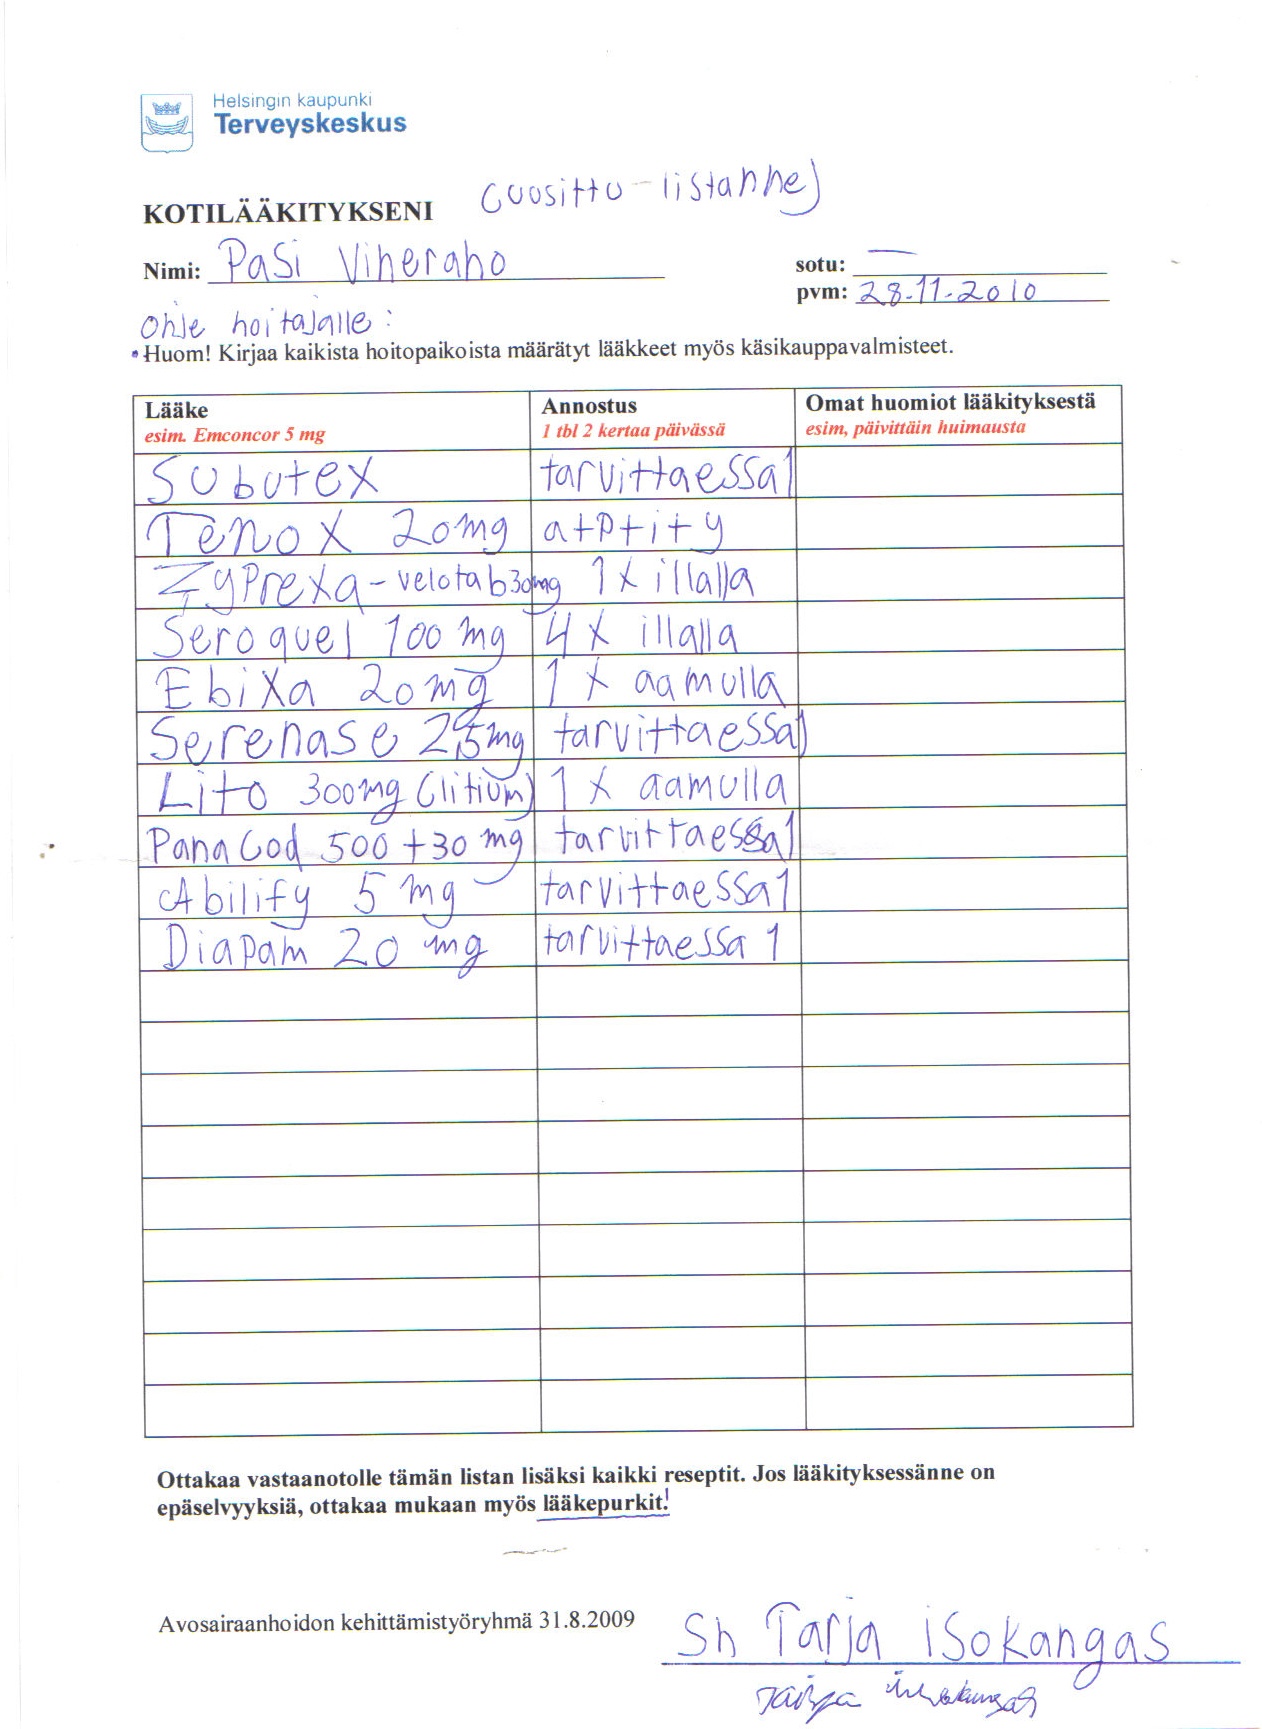 Helsingin kaupunki
Terveyskeskus
KOTILÄÄKITYKSENI (uosittu-listanne)
Nimi: Pasi Viheraho sotu: —
pvm: 28-11-2010
ohje hoitajalle:
• Huom! Kirjaa kaikista hoitopaikoista määrätyt lääkkeet myös käsikauppavalmisteet.
Lääke Annostus Omat huomiot lääkityksestä
esim. Emconcor 5 mg 1 tbl 2 kertaa päivässä esim, päivittäin huimausta
Subutex tarvittaessa 1
Tenox 20mg
Zyprexa-velotab 30mg 1 X illalla
Seroquel 100 mg 4 X illalla
Ebixa 20 mg 1 X aamulla
Serenase 2,5mg tarvittaessa 1
Lito 300mg (litium) 1 X aamulla
PanaCod 500+30 mg tarvittaessa 1
Abilify 5 mg tarvittaessa 1
Diapam 20 mg tarvittaessa 1
Ottakaa vastaanotolle tämän listan lisäksi kaikki reseptit. Jos lääkityksessänne on
epäselvyyksiä, ottakaa mukaan myös lääkepurkit!
Avosairaanhoidon kehittämistyöryhmä 31.8.2009
Sh Tarja isokangas